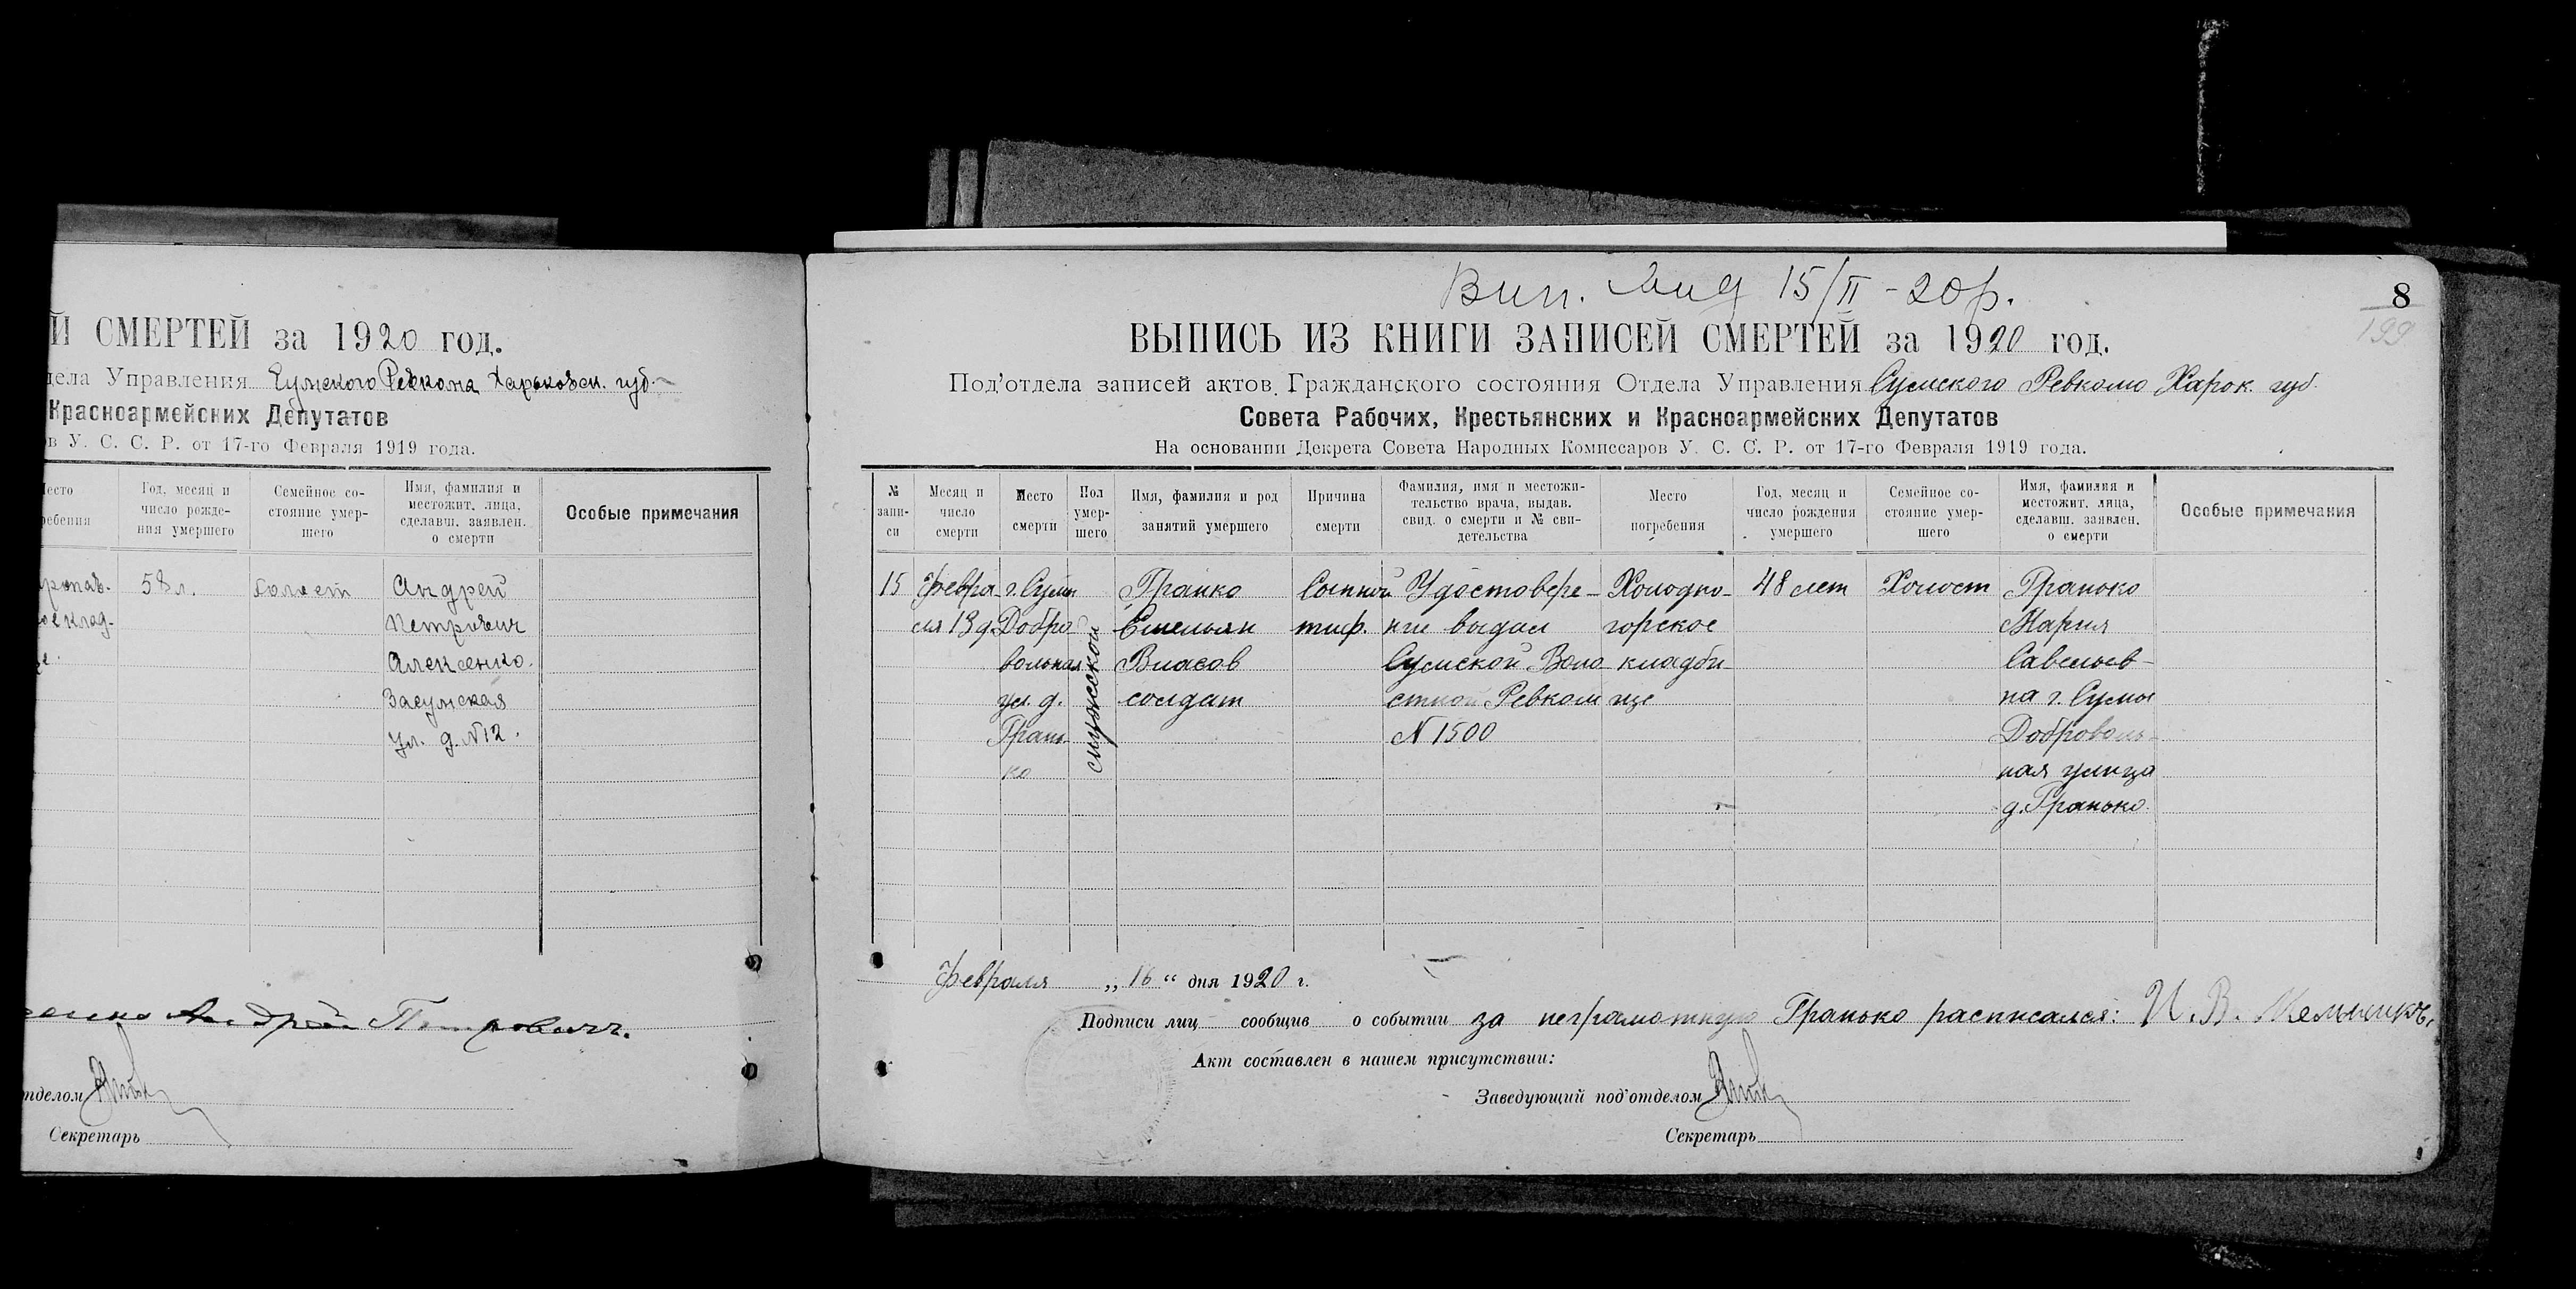 Й СМЕРТЕЙ за 1920 год.
дела Управления Сумского Ревкома Харьковск. губ.
Красноармейских Депутатов
в У. С. С. Р. от 17-го Февраля 1919 года.
Год, месяц и число рожде- ния умершего
Семейное со- стояние умер- шего
Имя, фамилия и местожит. лица, сделавш. заявлен. о смерти
Особые примечания
58 л.
Андрей
клад.
Петрович
Алексенко.
Засумская
ул. д. №12.
Андрей Петрович.
тделом
Секретарь
Вип. 15/II - 20 р.
8
199
ВЫПИСЬ ИЗ КНИГИ ЗАПИСЕЙ СМЕРТЕЙ за 1920 год.
Под'отдела записей актов Гражданского состояния Отдела Управления Сумского Ревкома Харок. губ.
Совета Рабочих, Крестьянских и Красноармейских Депутатов
На основании Декрета Совета Народных Комиссаров У. С. С. Р. от 17-го Февраля 1919 года.
№ запи- си
Месяц и число смерти
Место смерти
Пол умер- шего
Имя, фамилия и род занятий умершего
Причина смерти
Фамилия, имя и местожи- тельство врача, выдав. свид. о смерти и № сви- детельства
Место погребения
Год, месяц и число рождения умершего
Семейное со- стояние умер- шего
Имя, фамилия и местожит. лица, сделавш. заявлен. о смерти
Особые примечания
15 Февра- г. Сумы Гранко Сыпной Удостовере- Холодно- 48 лет Холост Гранько
ля 13 д. Добро Емельян тиф. ние выдал горское Мария
вольная Власов Сумской Воло кладби- Савельев-
ул. д. солдат стной Ревком ще на г. Сумы
Грань- № 1500 Доброволь-
ко ная улица
д. Гранько.
мужской
Февраля „ 16 “ дня 1920 г.
Подписи лиц сообщив о событии за неграмотную Гранько расписался: И. В. Мельникъ
Акт составлен в нашем присутствии:
Заведующий под'отделом
Секретарь